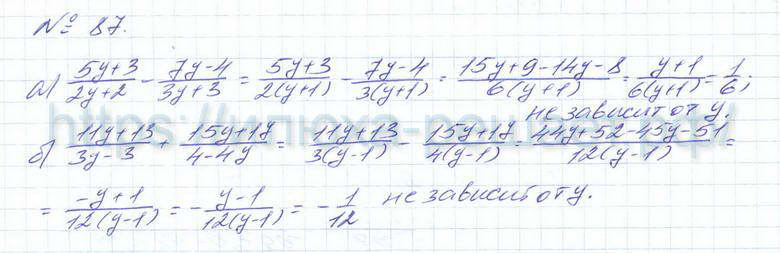 № 87.
а) (5y+3)/(2y+2) - (7y-4)/(3y+3) = (5y+3)/(2(y+1)) - (7y-4)/(3(y+1)) = (15y+9-14y-8)/(6(y+1)) = (y+1)/(6(y+1)) = 1/6;
не зависит от y.
б) (11y+13)/(3y-3) + (15y+17)/(4-4y) = (11y+13)/(3(y-1)) - (15y+17)/(4(y-1)) = (44y+52-45y-51)/(12(y-1)) =
= (-y+1)/(12(y-1)) = -(y-1)/(12(y-1)) = -1/12 не зависит от y.